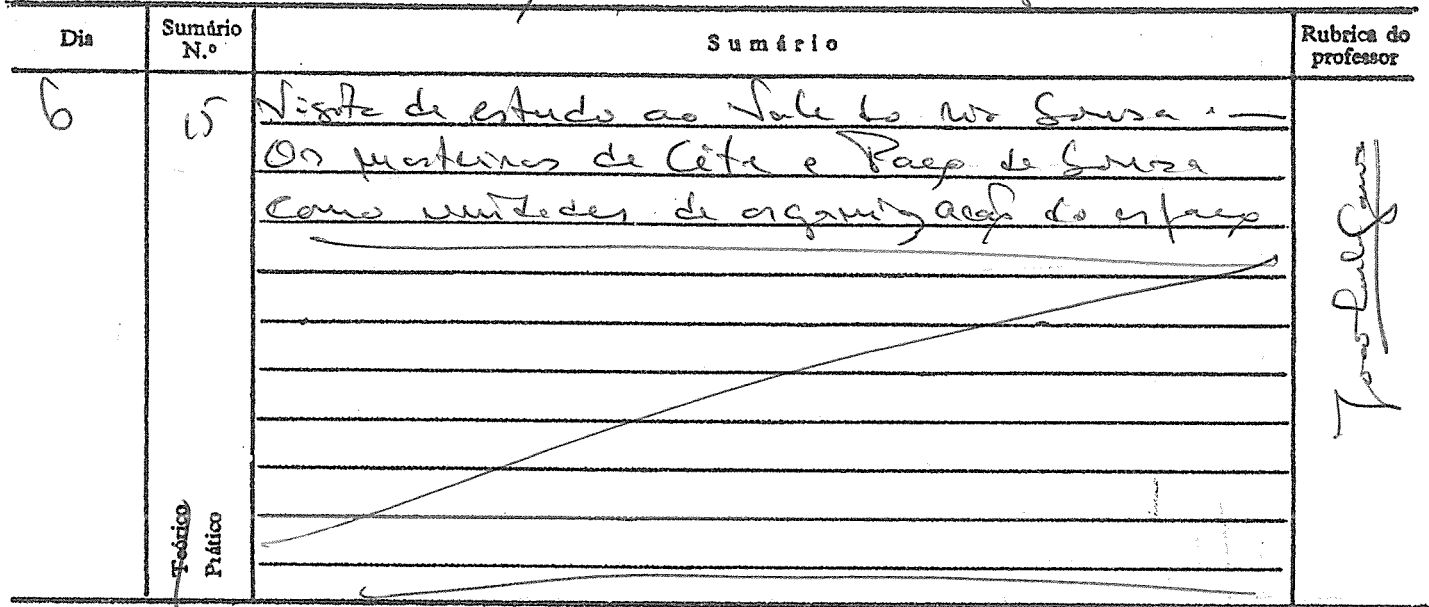 Dia
Sumário N.º
Sumário
Rubrica do professor
6
15
Visita de estudo ao Vale do rio Sousa . —
Os mosteiros de Cête e Paço de Sousa
como unidades de organização do espaço
Teórico
Prático